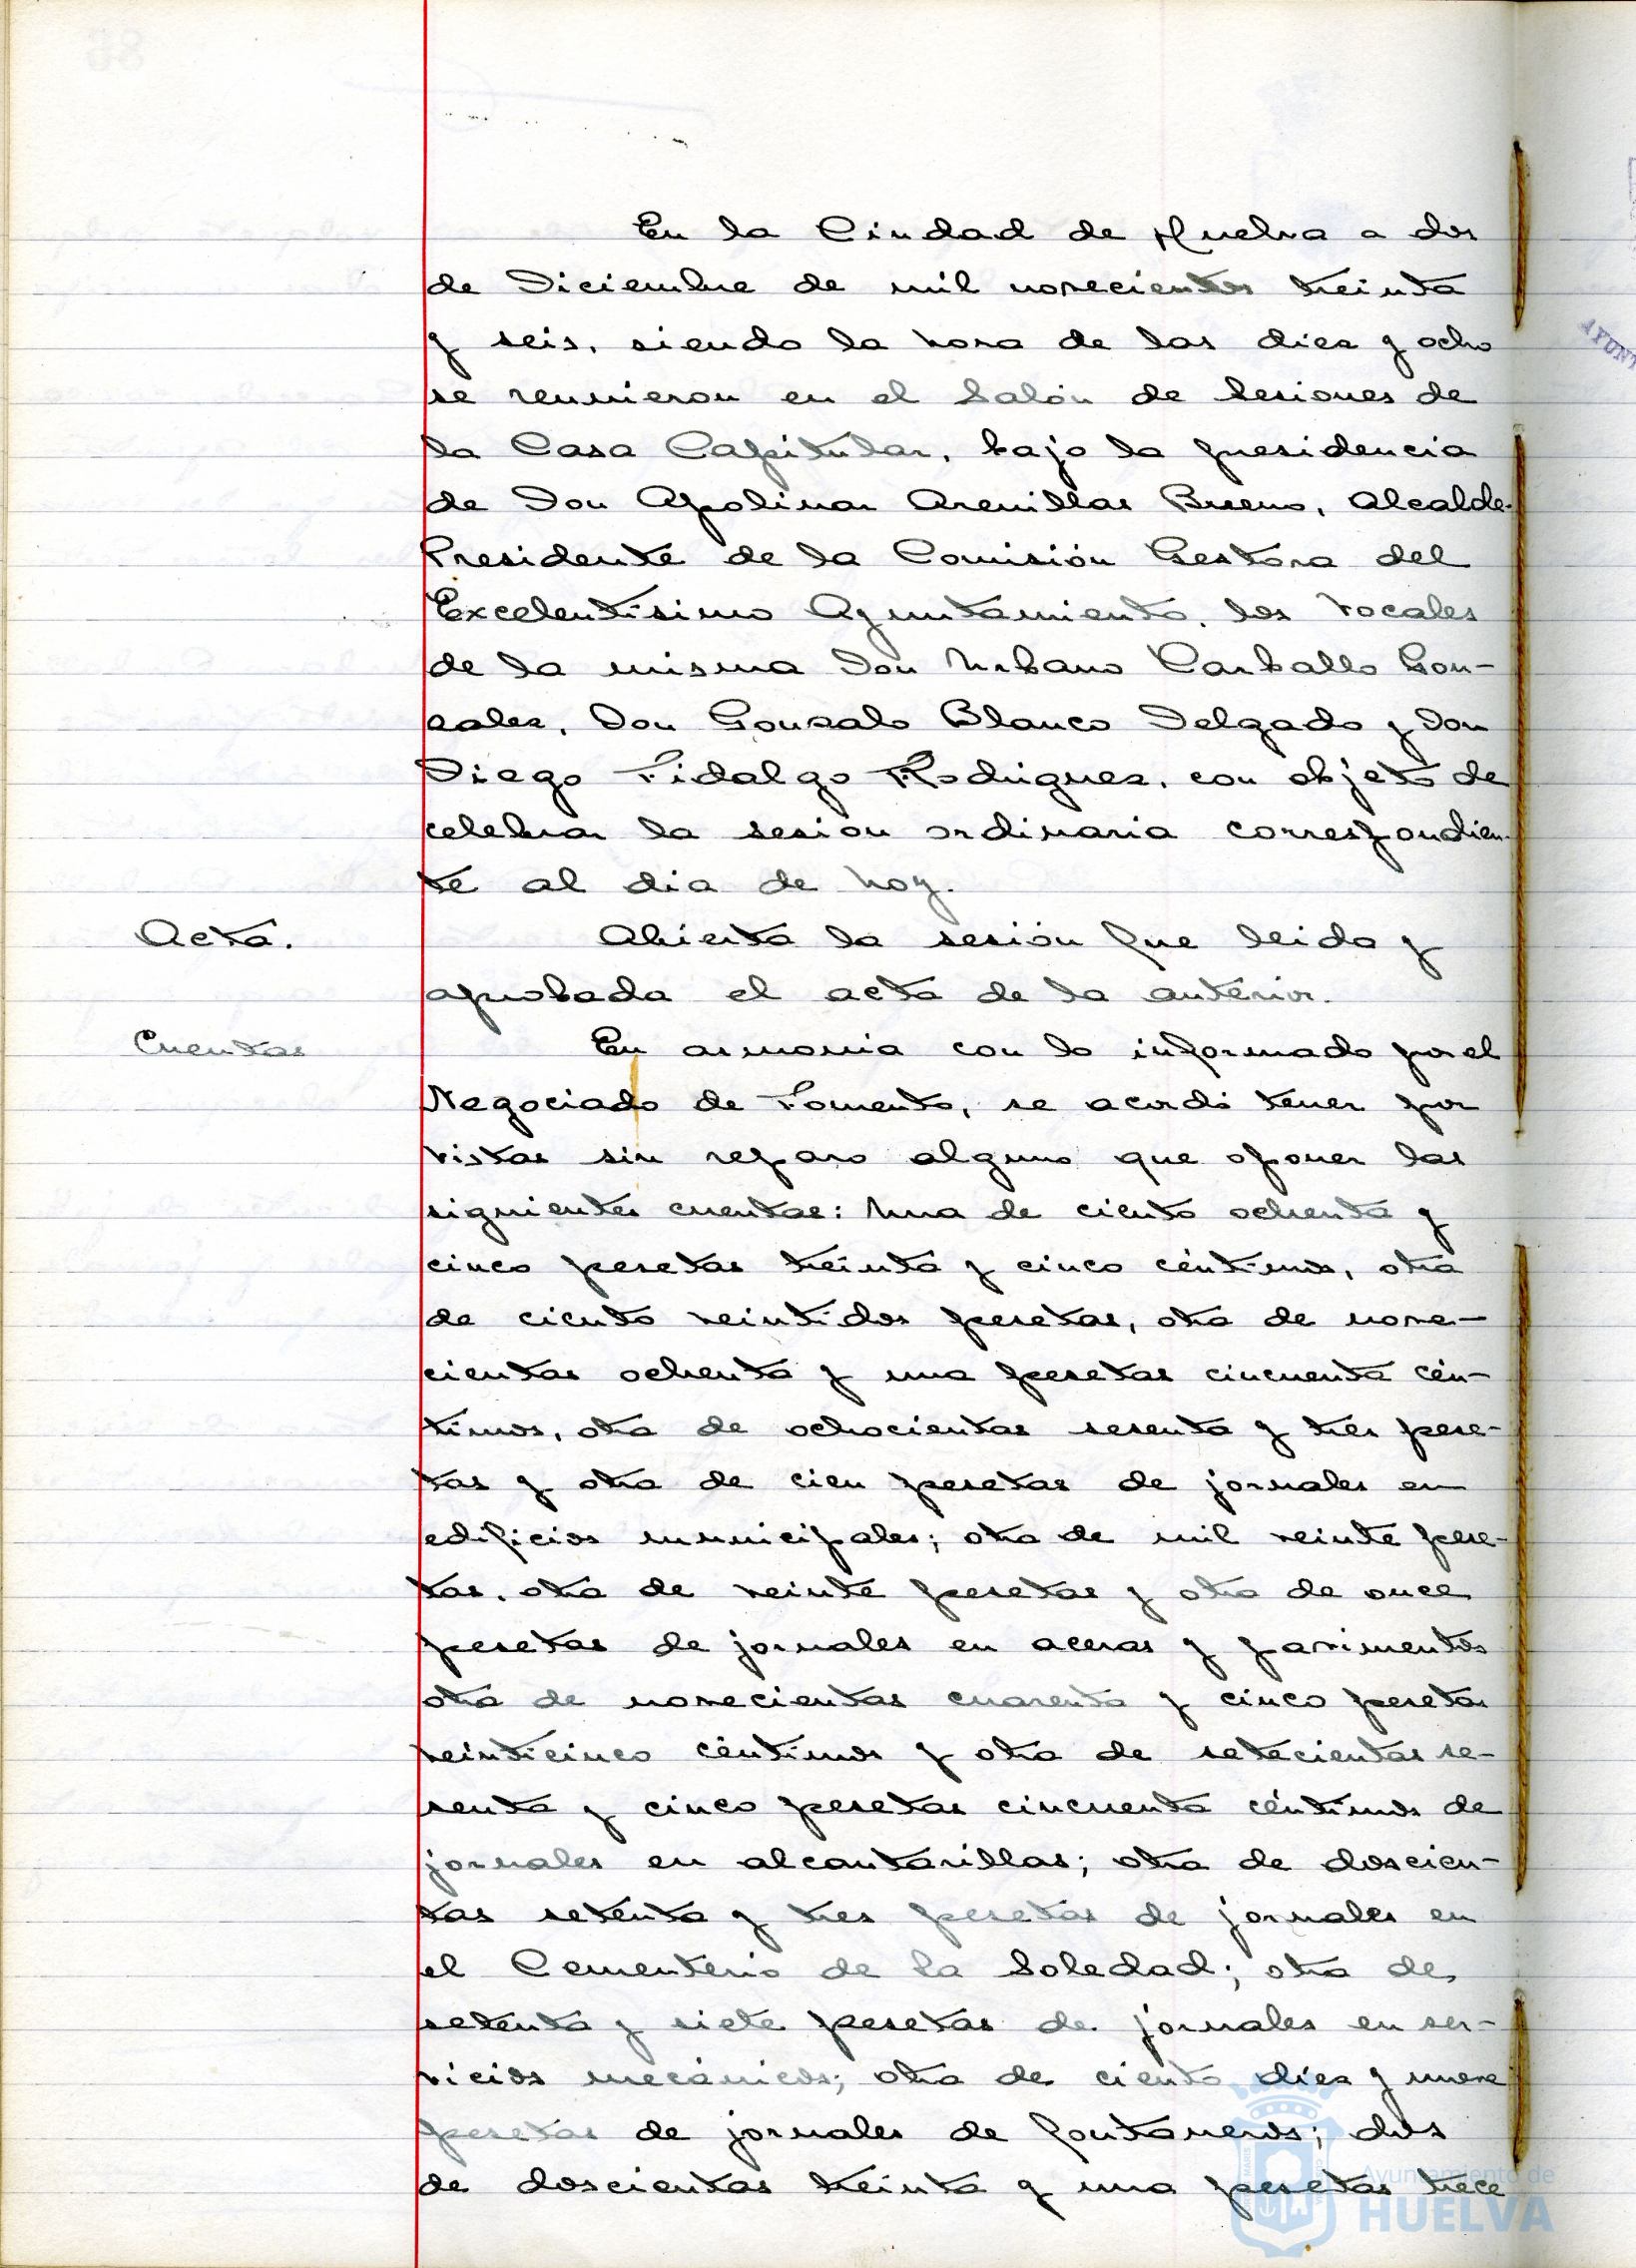 En la Ciudad de Huelva a dos
de Diciembre de mil novecientos treinta
y seis, siendo la hora de las diez y ocho
se reunieron en el Salón de Sesiones de
la Casa Capitular, bajo la presidencia
de Don Apolinar Arenillas Bueno, Alcalde-
Presidente de la Comisión Gestora del
Excelentísimo Ayuntamiento, los Vocales
de la misma Don Urbano Carballo Gon-
zalez, Don Gonzalo Blanco Delgado y Don
Diego Fidalgo Rodriguez, con objeto de
celebrar la sesion ordinaria correspondien-
te al dia de hoy.
Acta.
Abierta la sesión fue leida y
aprobada el acta de la anterior.
Cuentas
En armonia con lo informado por el
Negociado de Fomento, se acordó tener por
vistas sin reparo alguno que oponer las
siguientes cuentas: Una de ciento ochenta y
cinco pesetas treinta y cinco céntimos, otra
de ciento veintidos pesetas, otra de nove-
cientas ochenta y una pesetas cincuenta cén-
timos, otra de ochocientas sesenta y tres pese-
tas y otra de cien pesetas de jornales en
edificios municipales; otra de mil veinte pese-
tas, otra de veinte pesetas y otra de once
pesetas de jornales en aceras y pavimentos
otra de novecientas cuarenta y cinco pesetas
veinticinco céntimos y otra de setecientas se-
senta y cinco pesetas cincuenta céntimos de
jornales en alcantarillas; otra de doscien-
tas setenta y tres pesetas de jornales en
el Cementerio de la Soledad; otra de
setenta y siete pesetas de jornales en ser-
vicios mecánicos; otra de ciento diez y nueve
pesetas de jornales de fontaneros; dos
de doscientas treinta y una pesetas trece
Ayuntamiento de
HUELVA